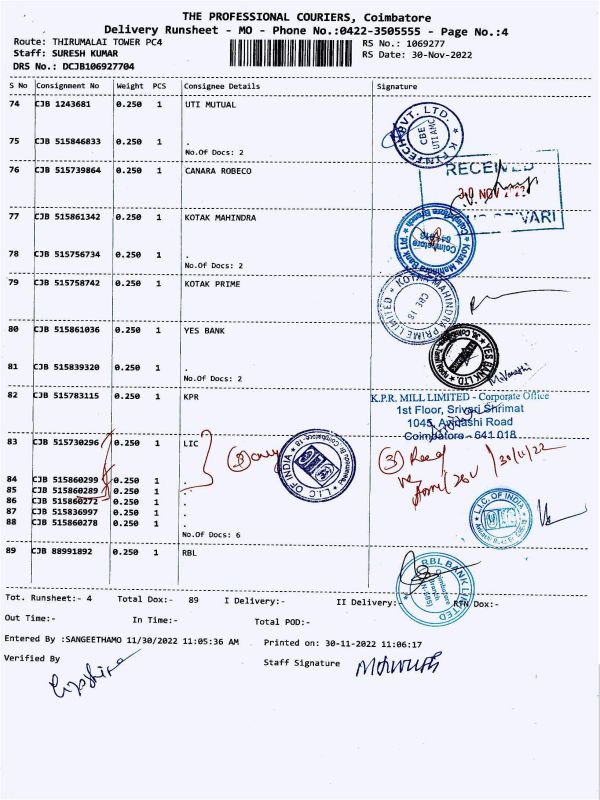 THE PROFESSIONAL COURIERS, Coimbatore
Delivery Runsheet - MO - Phone No.:0422-3505555 - Page No.:4
Route: THIRUMALAI TOWER PC4
Staff: SURESH KUMAR
DRS No.: DCJB106927704
RS No.: 1069277
RS Date: 30-Nov-2022
S No Consignment No Weight PCS Consignee Details Signature
74 CJB 1243681 0.250 1 UTI MUTUAL
75 CJB 515846833 0.250 1 .
No.Of Docs: 2
K FINTECH PVT. LTD.
CBE
UTI AMC
76 CJB 515739864 0.250 1 CANARA ROBECO
RECEIVED
30 NOV
VARI
77 CJB 515861342 0.250 1 KOTAK MAHINDRA
78 CJB 515756734 0.250 1 .
No.Of Docs: 2
Kotak Mahindra Bank
Coimbatore Branch
Coimbatore
641 018
79 CJB 515758742 0.250 1 KOTAK PRIME
KOTAK MAHINDRA PRIME LIMITED
CBE 18
80 CJB 515861036 0.250 1 YES BANK
81 CJB 515839320 0.250 1 .
No.Of Docs: 2
YES BANK LTD.
82 CJB 515783115 0.250 1 KPR
K.P.R. MILL LIMITED - Corporate Office
1st Floor, Srivari Shrimat
1045, Avinashi Road
Coimbatore - 641 018
83 CJB 515730296 0.250 1 LIC
84 CJB 515860299 0.250 1 .
85 CJB 515860289 0.250 1 .
86 CJB 515860272 0.250 1 .
87 CJB 515836997 0.250 1 .
88 CJB 515860278 0.250 1 .
No.Of Docs: 6
L.I.C OF INDIA
(3) 30/11/22
L.I.C. OF INDIA
89 CJB 88991892 0.250 1 RBL
RBL BANK LIMITED
Coimbatore
Branch
Tot. Runsheet:- 4 Total Dox:- 89 I Delivery:- II Delivery:- RTN Dox:-
Out Time:- In Time:- Total POD:-
Entered By :SANGEETHAMO 11/30/2022 11:05:36 AM Printed on: 30-11-2022 11:06:17
Verified By Staff Signature